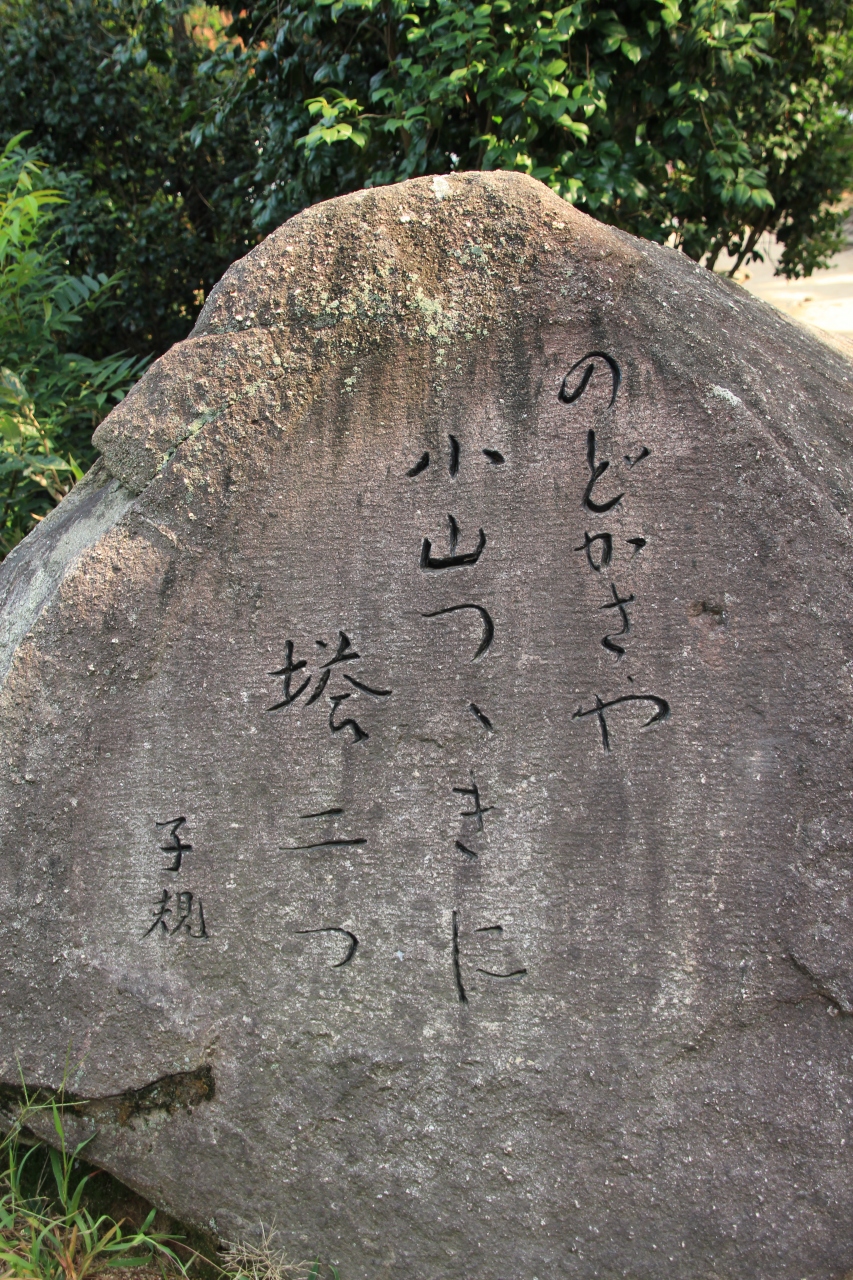 のどかさや
小山つゝきに
塔二つ
子規